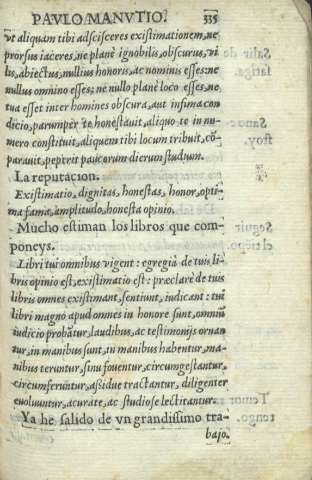 PAVLO MANVTIO. 335
vt aliquam tibi adscisceres existimationem, ne
prorsus iaceres, ne planè ignobilis, obscurus, vi
lis, abiectus, nullius honoris, ac nominis esses: ne
nullus omnino esses; ne nullo planè loco esses, ne
tua esset inter homines obscura, aut infima con
dicio, parumper te honestauit, aliquo te in nu-
mero constituit, aliquem tibi locum tribuit, cō-
parauit, peperit paucorum dierum studium.
La reputacion.
Existimatio, dignitas, honestas, honor, opti-
ma fama, amplitudo, honesta opinio.
Mucho estiman los libros que com-
poneys.
Libri tui omnibus vigent: egregia de tuis li-
bris opinio est, existimatio est: præclarè de tuis
libris omnes existimant, sentiunt, iudicant: tui
libri magno apud omnes in honore sunt, omniū
iudicio probātur, laudibus, ac testimonijs ornan
tur, in manibus sunt, in manibus habentur, ma-
nibus teruntur, sinu fouentur, circumgestantur,
circumferūntur, assidue tractantur, diligenter
euoluuntur, accurate, ac studiose lectitantur.
Ya he salido de vn grandissimo tra-
bajo.